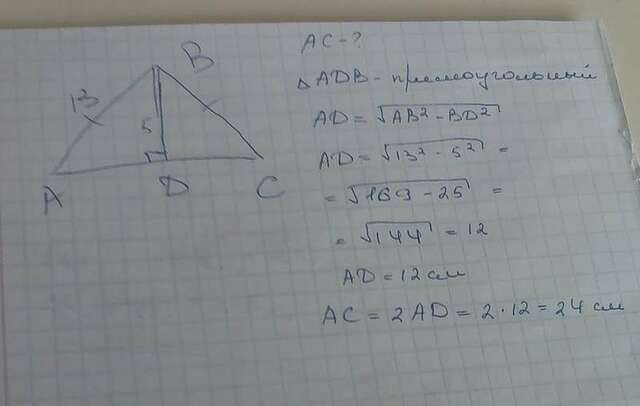 B
13
5
A
D
C
AC - ?
△ADB - прямоугольный
AD = √AB² - BD²
AD = √13² - 5² =
= √169 - 25 =
= √144 = 12
AD = 12 см
AC = 2AD = 2 · 12 = 24 см